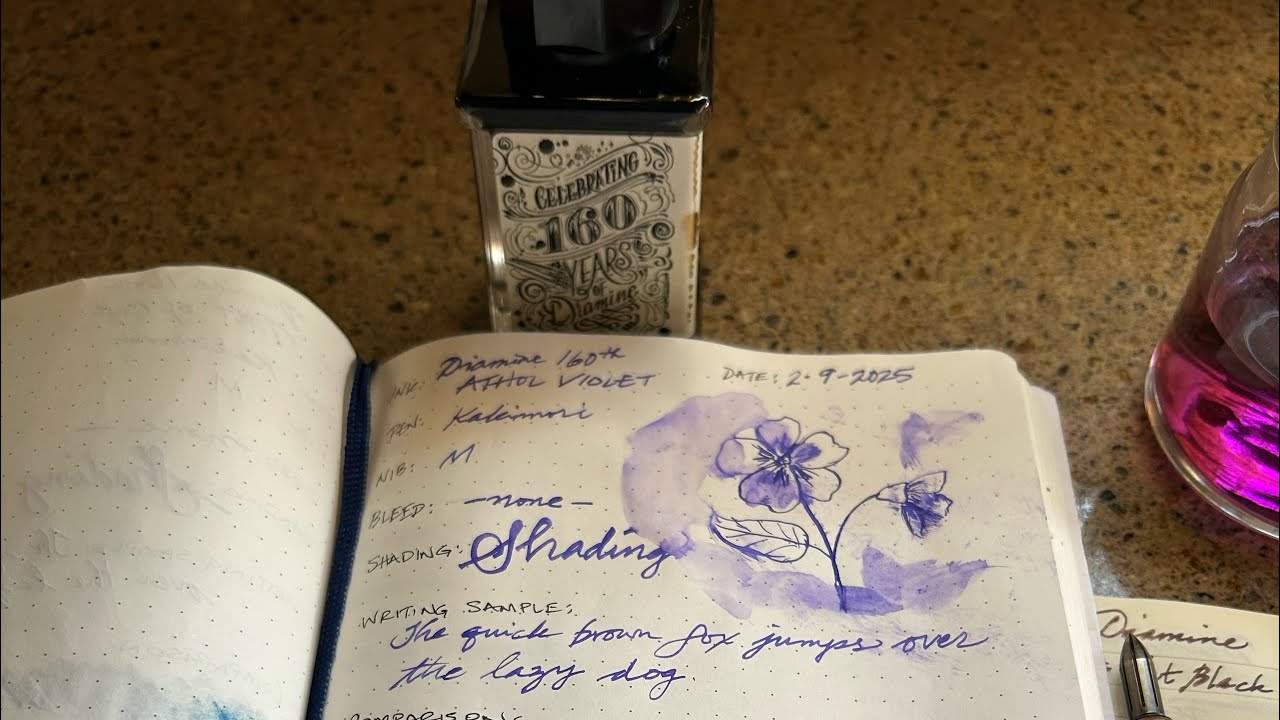 CELEBRATING
160
YEARS
of
Diamine
INK: Diamine 160th
ATHOL VIOLET
DATE: 2-9-2025
PEN: Kakimori
NIB: M
BLEED: -none-
SHADING: Shading
WRITING SAMPLE:
The quick brown fox jumps over
the lazy dog.
COMPARISON:
Diamine
Black